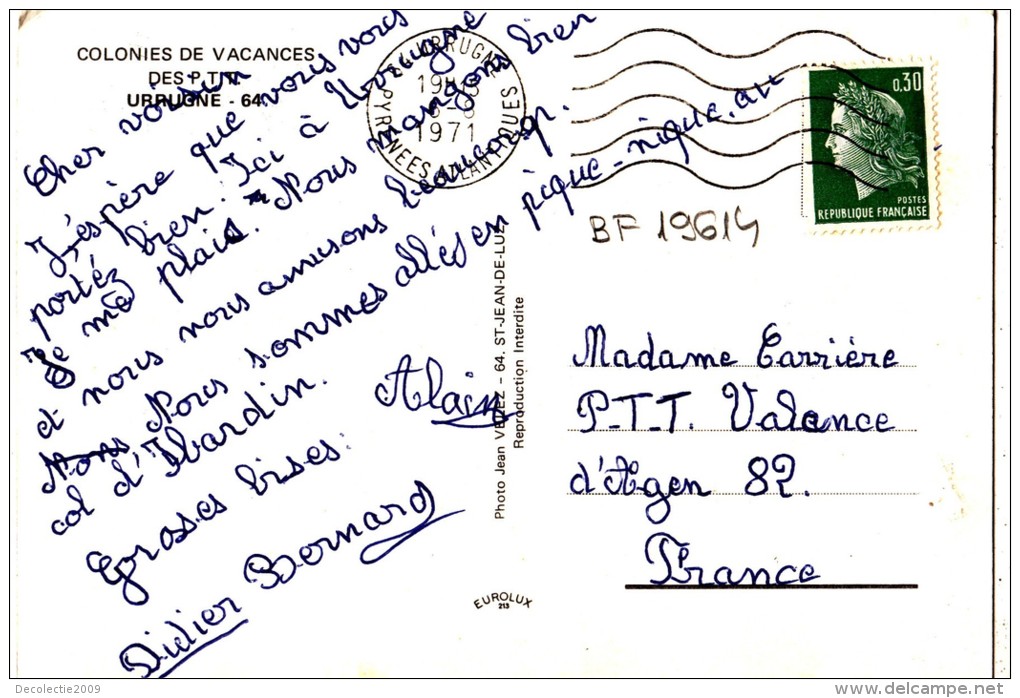 COLONIES DE VACANCES
DES P.T.T.
URRUGNE - 64
Cher voisin
J'éspère que vous vous
portéz bien. Ici à Urrugne
Je me plais. Nous mangons bien
et nous nous amusons beaucoup.
Nous Nous sommes allés en pique-nique au
col d'Ibardin.
Groses bises.
Alain
Didier Bernard
64 URRUGNE
1971
PYRENEES ATLANTIQUES
0,30
POSTES
REPUBLIQUE FRANÇAISE
BF 19614
Photo Jean VELEZ - 64. ST-JEAN-DE-LUZ
Reproduction Interdite
Madame Carrière
P.T.T. Valence
d'Agen 82.
France
EUROLUX
213
Decolectie2009
www.delcampe.net